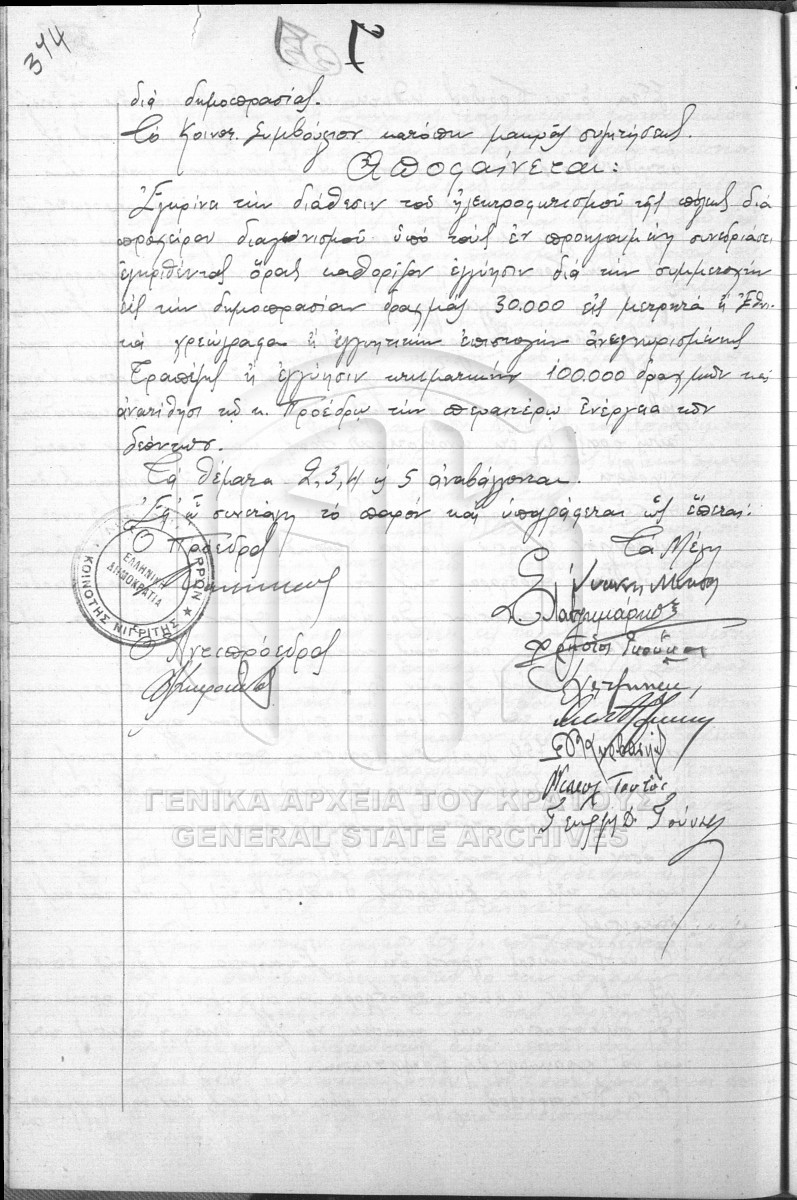 374
διά δημοπρασίας.
Τό Κοινοτ. Συμβούλιον κατόπιν μακράς συζητήσεως.
Αποφαίνεται:
Ἐγκρίνει την διάθεσιν τοῦ ἠλεκτροφωτισμοῦ τῆς πόλεως διά
προχείρου διαγωνισμοῦ ὑπό τούς ἐν προηγουμένη συνεδριάσει
ἐγκριθέντας ὅρους καθορίζον ἐγγύησιν διά την συμμετοχήν
εἰς την δημοπρασίαν δραχμάς 30.000 εἰς μετρητά ἤ Ἐθνι-
κά χρεώγραφα ἤ ἐγγυητικήν ἐπιστολήν ἀνεγνωρισμένης
Τραπέζης ἤ ἐγγύησιν κτηματικήν 100.000 δραχμῶν καί
ἀνατίθησι τῷ κ. Προέδρῳ τήν περαιτέρω ἐνέργεια των
δεόντων.
Τά θέματα 2, 3, 4 ἤ 5 ἀναβάλλονται.
Ἐφ' ᾧ συνετάγη τό παρόν καί ὑπογράφεται ὡς ἕπεται:
Ὁ Πρόεδρος
Τα Μέλη
ΕΛΛΗΝΙΚΗ
ΔΗΜΟΚΡΑΤΙΑ
ΚΟΙΝΟΤΗΣ ΝΙΓΡΙΤΗΣ
ΡΡΩΝ
Ὁ Αντιπρόεδρος
ΓΕΝΙΚΑ ΑΡΧΕΙΑ ΤΟΥ ΚΡΑΤΟΥΣ
GENERAL STATE ARCHIVES